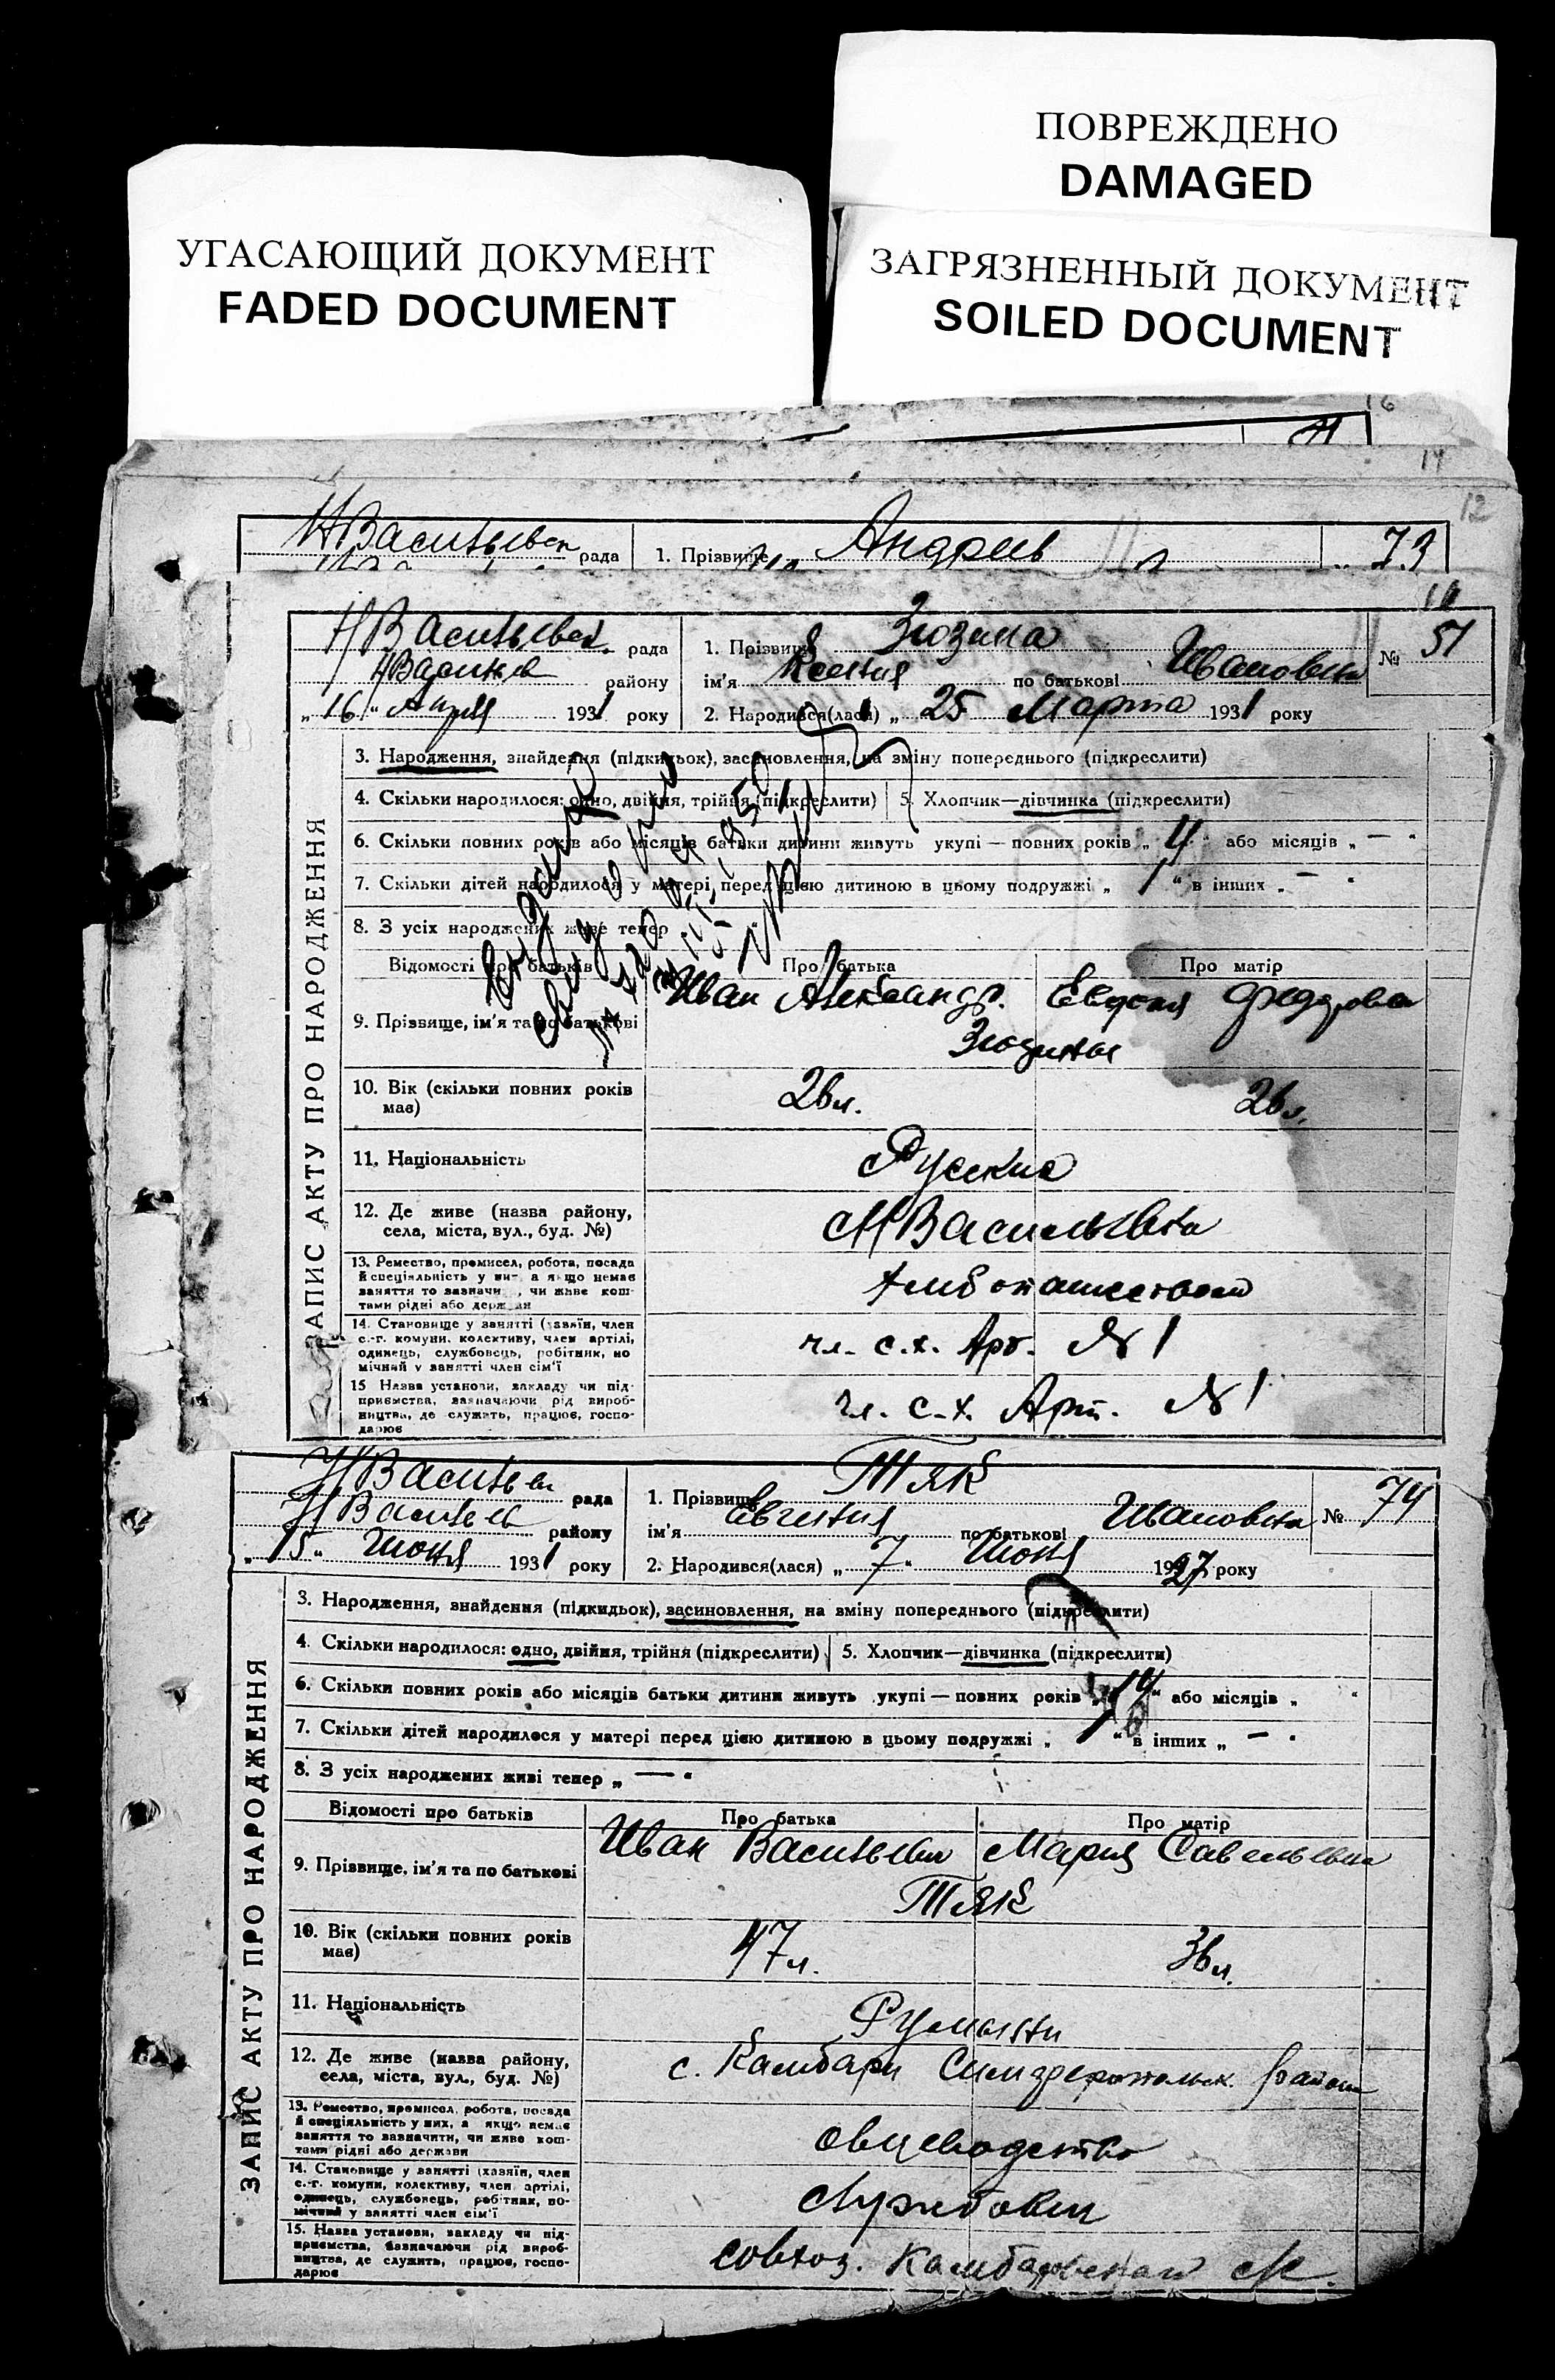 ПОВРЕЖДЕНО
DAMAGED
УГАСАЮЩИЙ ДОКУМЕНТ
FADED DOCUMENT
ЗАГРЯЗНЕННЫЙ ДОКУМЕНТ
SOILED DOCUMENT
16
14
12
рада 1. Прізвище Андрів 73
НВасильев. рада 1. Прізвище Зюзина № 51
району ім'я Ксения по батькові Ивановна
„16“ Апреля 1931 року 2. Народився(лася) „25 Марта 1931 року
ЗАПИС АКТУ ПРО НАРОДЖЕННЯ
3. Народження, знайдення (підкидьок), засиновлення, на зміну попереднього (підкреслити)
4. Скільки народилося: одно, двійня, трійня (підкреслити) 5. Хлопчик—дівчинка (підкреслити)
6. Скільки повних років або місяців батьки дитини живуть укупі — повних років „4“ або місяців „—“
7. Скільки дітей народилося у матері перед цією дитиною в цьому подружжі „1“ в інших „—“
8. З усіх народжених живе тепер
Відомості про батьків Про батька Про матір
9. Прізвище, ім'я та по батькові Иван Александр. Евдокия Федоровна
Зюзины
10. Вік (скільки повних років має) 26 л. 26 л.
11. Національність Русские
12. Де живе (назва району, села, міста, вул., буд. №) НВасильевка
13. Ремество, промисел, робота, посада й спеціяльність у них, а якщо немає заняття то зазначити, чи живе коштами рідні або держави Хлебопашество
14. Становище у занятті (хазяїн, член с.-г. комуни, колективу, член артілі, одинець, службовець, робітник, помічний у занятті член сім'ї чл. с.х. Арт. № 1
15. Назва установи, закладу чи підприємства, зазначаючи рід виробництва, де служить, працює, господарює чл. с.х. Арт. № 1
НВасильев рада 1. Прізвище Тяк № 74
НВасильев району ім'я Евгения по батькові Ивановна
„15“ Июня 1931 року 2. Народився(лася) „7“ Июня 1927 року
ЗАПИС АКТУ ПРО НАРОДЖЕННЯ
3. Народження, знайдення (підкидьок), засиновлення, на зміну попереднього (підкреслити)
4. Скільки народилося: одно, двійня, трійня (підкреслити) 5. Хлопчик—дівчинка (підкреслити)
6. Скільки повних років або місяців батьки дитини живуть укупі — повних років „14“ або місяців „ “
7. Скільки дітей народилося у матері перед цією дитиною в цьому подружжі „ “ в інших „—“
8. З усіх народжених живі тепер „—“
Відомості про батьків Про батька Про матір
9. Прізвище, ім'я та по батькові Иван Васильевич Мария Савельевна
Тяк
10. Вік (скільки повних років має) 47 л. 36 л.
11. Національність Румыны
12. Де живе (назва району, села, міста, вул., буд. №) с. Камбари Симферопольск. район
13. Ремество, промисел, робота, посада й спеціяльність у них, а якщо немає заняття то зазначити, чи живе коштами рідні або держави овцеводство
14. Становище у занятті (хазяїн, член с.-г. комуни, колективу, член артілі, одинець, службовець, робітник, помічний у занятті член сім'ї Службовец
15. Назва установи, закладу чи підприємства, зазначаючи рід виробництва, де служить, працює, господарює совхоз.